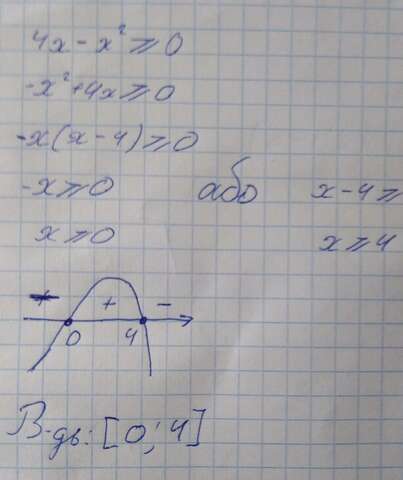 4x - x² ⩾ 0
-x² + 4x ⩾ 0
-x(x - 4) ⩾ 0
-x ⩾ 0 або x - 4 ⩾
x ⩾ 0 x ⩾ 4
+ + -
0 4
В-дь: [0; 4]